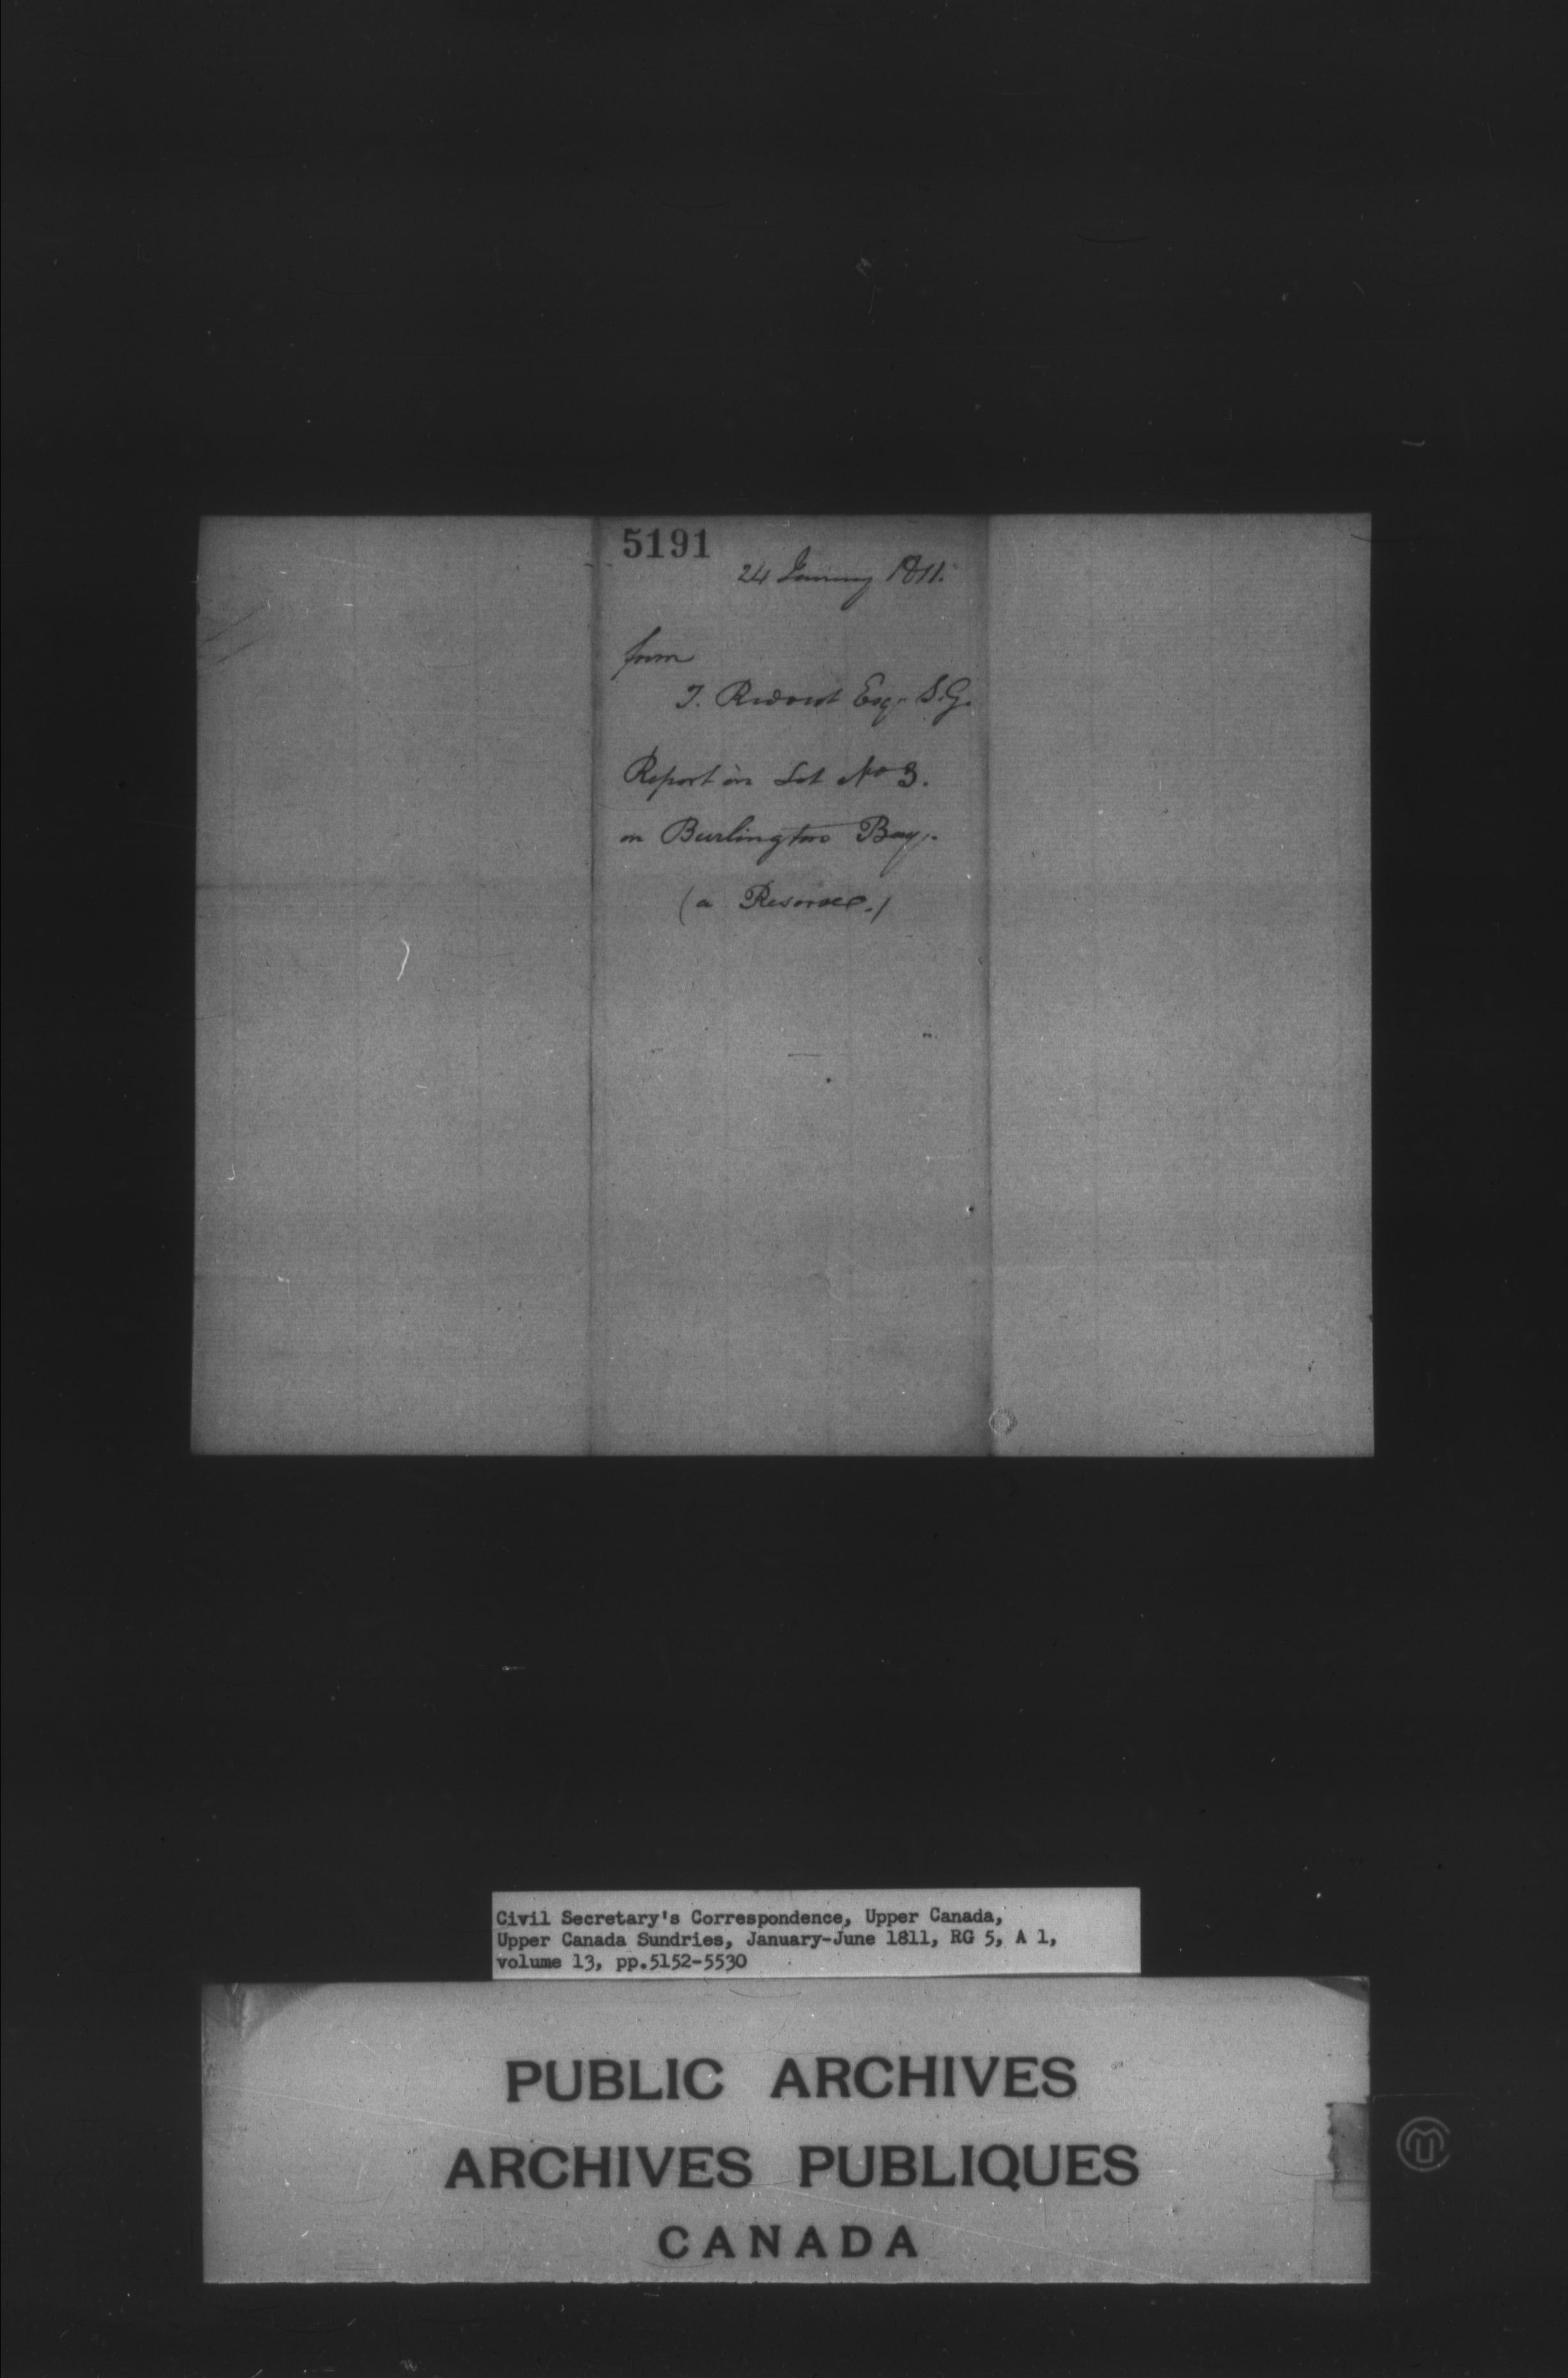 5191
24 January 1811.
from
T. Ridout Esq. S.G.
Report on Lot No 3.
on Burlington Bay.
(a Reserve.)
Civil Secretary's Correspondence, Upper Canada,
Upper Canada Sundries, January-June 1811, RG 5, A 1,
volume 13, pp.5152-5530
PUBLIC ARCHIVES
ARCHIVES PUBLIQUES
CANADA